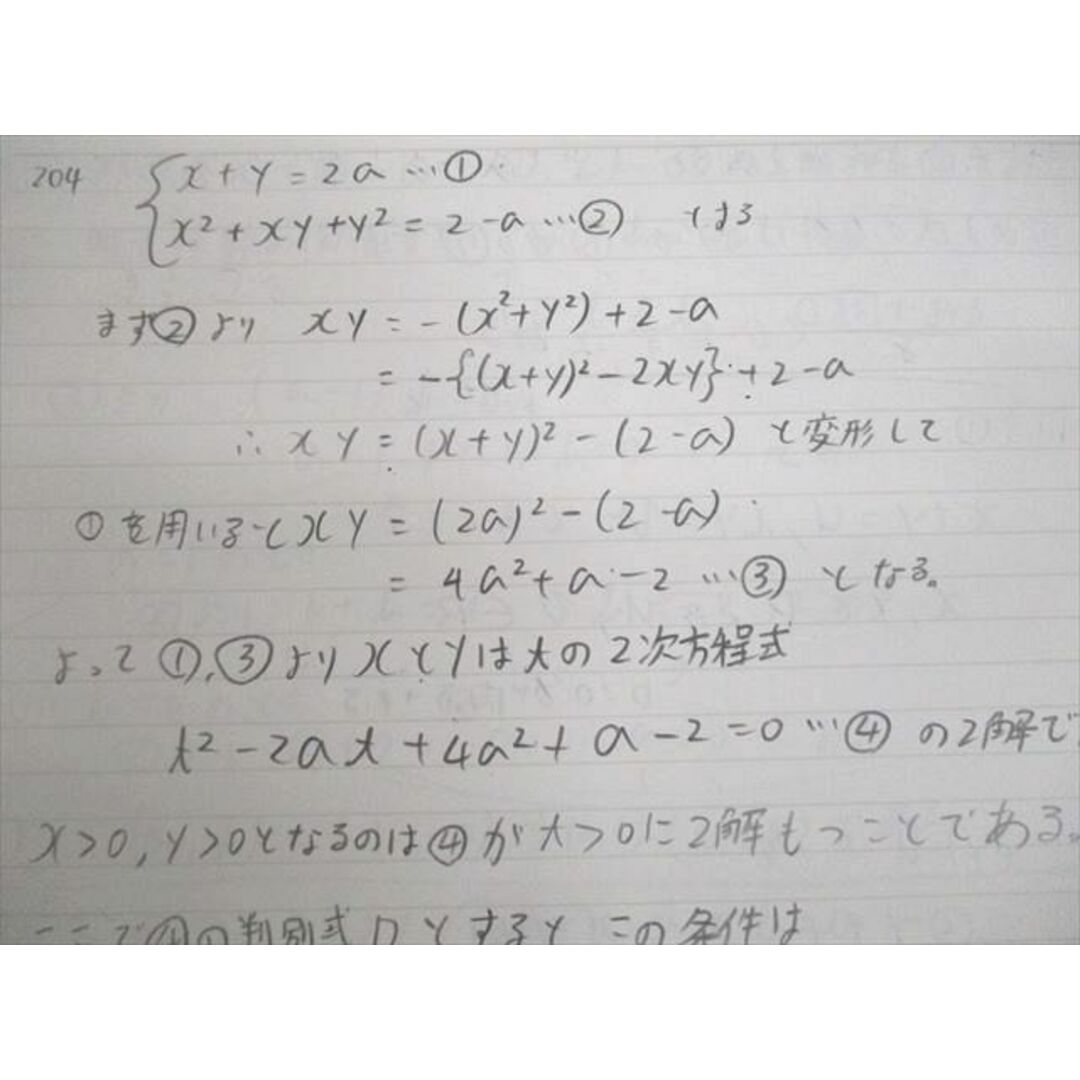 204 { x+y=2a …①
x²+xy+y²=2-a …② とする
まず②より xy = -(x²+y²)+2-a
= -{(x+y)²-2xy}+2-a
∴ xy = (x+y)²-(2-a) と変形して
①を用いると xy = (2a)²-(2-a)
= 4a²+a-2 …③ となる。
よって①,③よりxとyはtの2次方程式
t²-2at+4a²+a-2=0 …④ の2解で
x>0, y>0となるのは④がt>0に2解もつことである。
ここで④の判別式Dとするとこの条件は